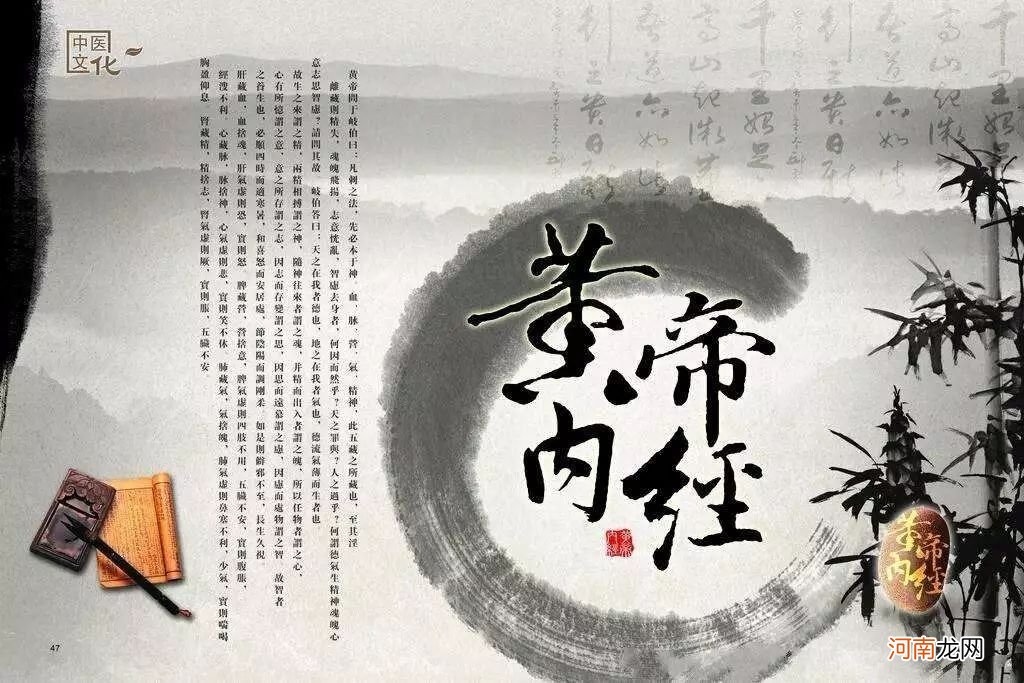 中医
文化
千里始足
高山起微
吾道亦如
之貴日
黄帝
内經
黄帝
内經
黄帝問于岐伯曰：凡刺之法，先必本于神 血、脉、營、氣、精神，此五藏之所藏也，至其淫
離藏則精失、魂魄飛揚、志意恍亂、智慮去身者，何因而然乎？天之罪與？人之過乎？何謂德氣生精神魂魄心
意志思智慮？請問其故 岐伯答曰：天之在我者德也，地之在我者氣也，德流氣薄而生者也
故生之來謂之精，兩精相搏謂之神，隨神往來者謂之魂，并精而出入者謂之魄，所以任物者謂之心，
心有所憶謂之意，意之所存謂之志，因志而存變謂之思，因思而遠慕謂之慮，因慮而處物謂之智 故智者
之養生也，必順四時而適寒暑，和喜怒而安居處，節陰陽而調剛柔 如是則僻邪不至，長生久視
肝藏血，血捨魂，肝氣虛則恐，實則怒 脾藏營，營捨意，脾氣虛則四肢不用，五臟不安，實則腹脹，
經溲不利 心藏脉，脉捨神，心氣虛則悲，實則笑不休 肺藏氣，氣捨魄，肺氣虛則鼻塞不利，少氣，實則喘喝
胸盈仰息 腎藏精，精捨志，腎氣虛則厥，實則脹，五臟不安
黄帝
内經
47
河南龙网